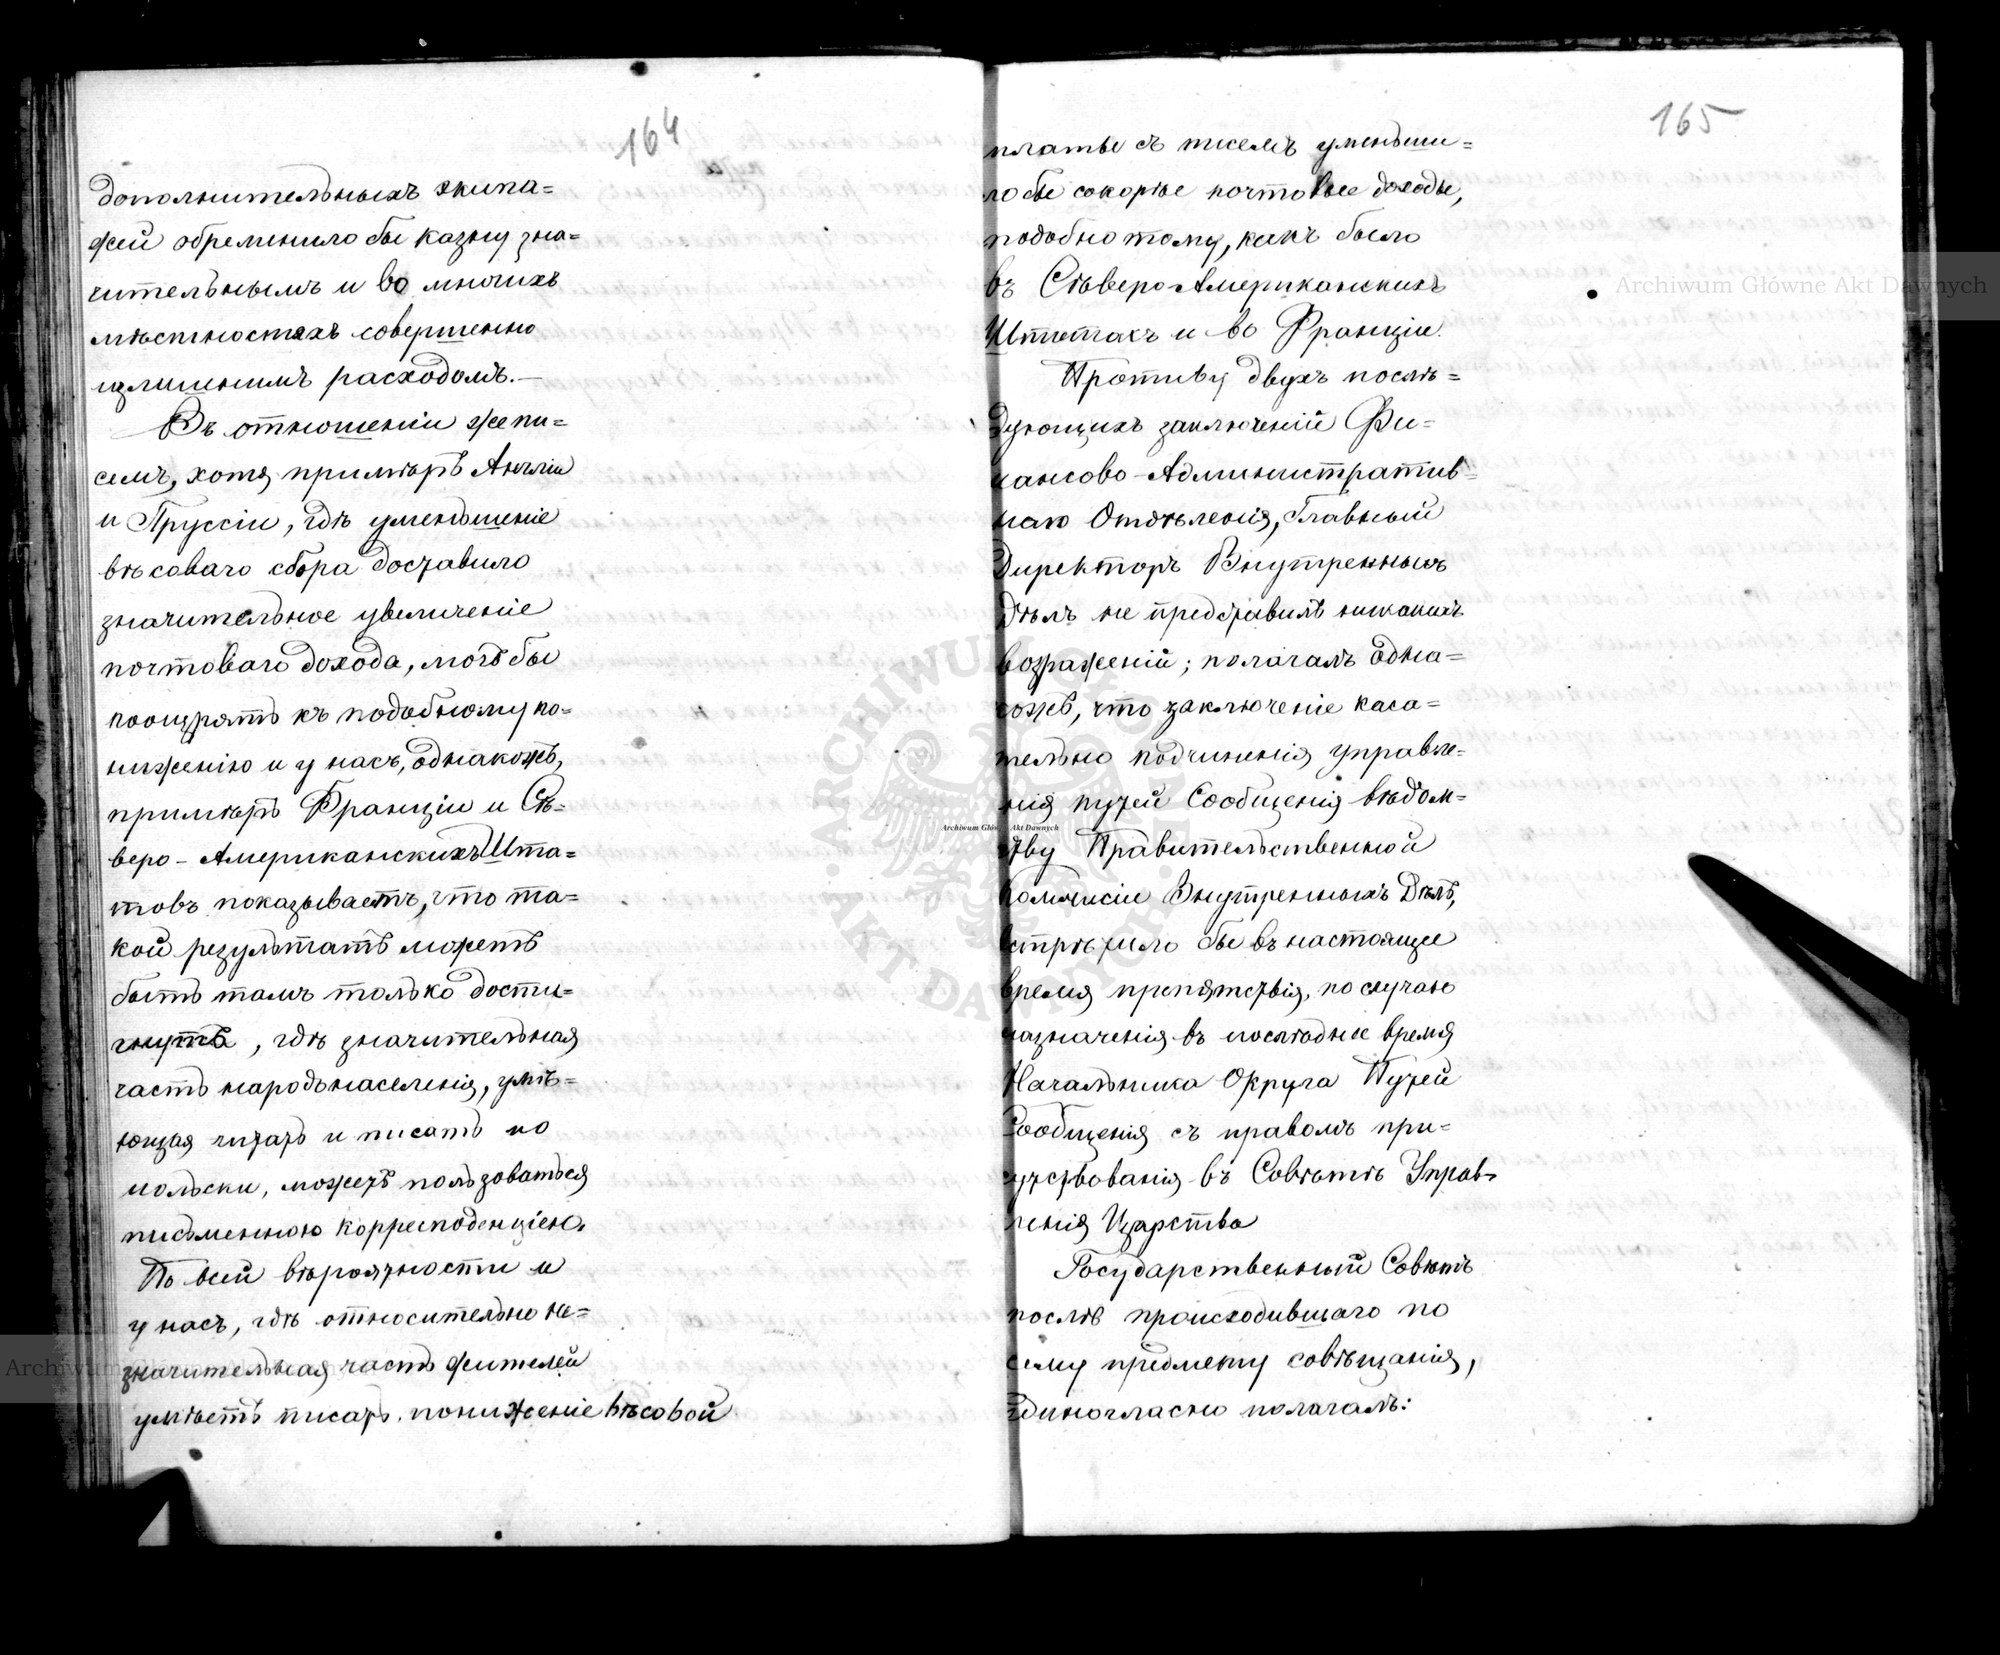 164
дополнительныхъ экипа=
жей обременило бы казну зна=
чительнымъ и во многихъ
мѣстностяхъ совершенно
излишнимъ расходомъ.—
Въ отношеніи же пи=
семъ, хотя примѣръ Англіи
и Пруссіи, гдѣ уменьшеніе
вѣсоваго сбора доставило
значительное увеличеніе
почтоваго дохода, могъ бы
поощрять къ подобному по=
ниженію и у насъ, однакожъ,
примѣръ Франціи и Сѣ=
веро-Американскихъ Шта=
товъ показываетъ, что та=
кой результатъ можетъ
быть тамъ только дости=
гнутъ, гдѣ значительная
часть народонаселенія, умѣ=
ющая читать и писать по
польски, можетъ пользоваться
письменною корреспонденціею.
По всей вѣроятности и
у насъ, гдѣ относительно не=
значительная часть жителей
умѣетъ писать, пониженіе вѣсовой
165
платы съ писемъ уменьши=
ло бы скорѣе почтовые доходы,
подобно тому, какъ было
въ Сѣверо-Американскихъ
Штатахъ и во Франціи.
Противу двухъ послѣ=
дующихъ заключеній Фи=
нансово-Административ=
наго Отдѣленія, Главный
Директоръ Внутреннихъ
Дѣлъ не представилъ никакихъ
возраженій; полагалъ одна=
кожъ, что заключеніе каса=
тельно подчиненія управле=
нія путей Сообщенія вѣдом=
ству Правительственной
Коммисіи Внутреннихъ Дѣлъ,
встрѣтило бы въ настоящее
время препятствія, по случаю
назначенія въ послѣднее время
Начальника Округа Путей
Сообщенія съ правомъ при=
сутствованія въ Совѣтѣ Управ=
ленія Царства
Государственный Совѣтъ
послѣ происходившаго по
сему предмету совѣщанія,
единогласно полагалъ:
Archiwum Główne Akt Dawnych
Archiwum Główne Akt Dawnych
ARCHIWUM GŁÓWNE AKT DAWNYCH